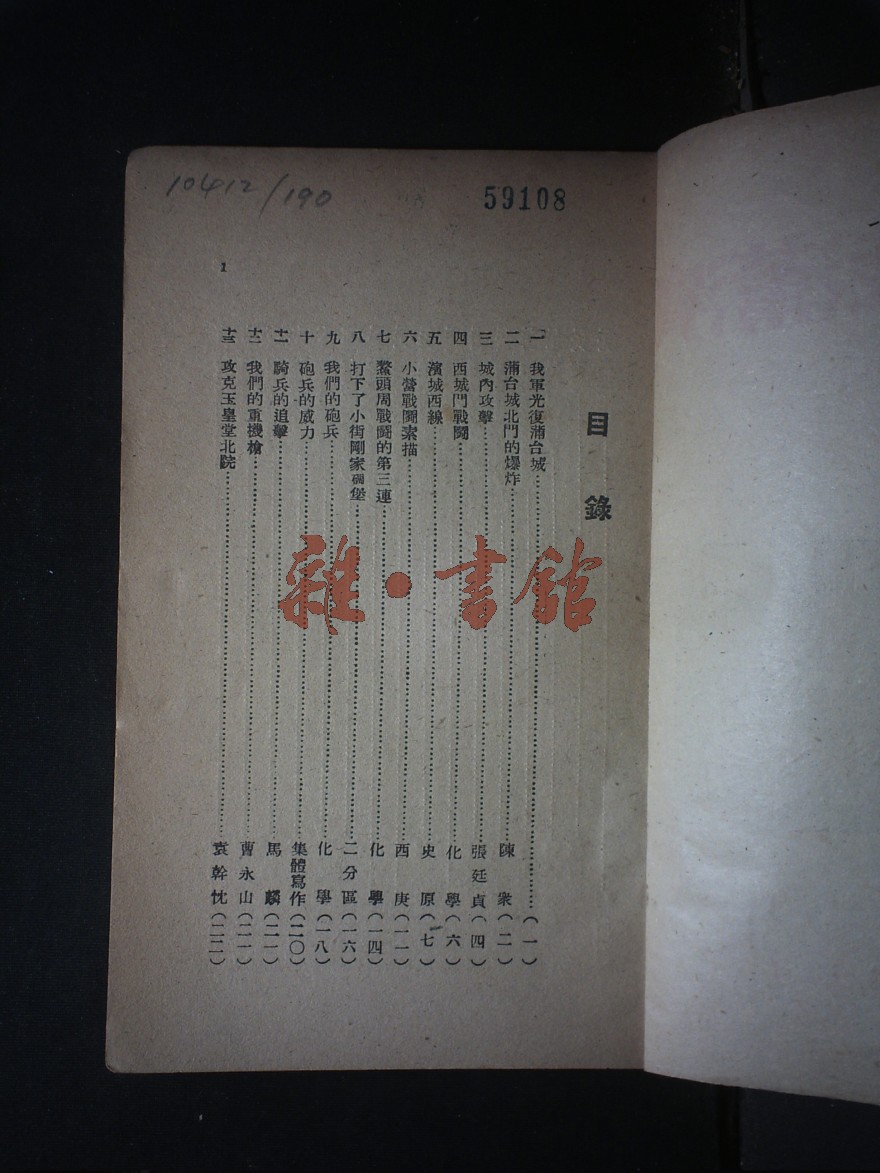 10412/190
59108
目錄
一 我軍光復蒲台城……(一)
二 蒲台城北門的爆炸……陳衆(二)
三 城內攻擊……張廷貞(四)
四 西城門戰鬭……化學(六)
五 濱城西線……史原(七)
六 小營戰鬭素描……西庚(一一)
七 鰲頭周戰鬭的第三連……化學(一四)
八 打下了小街剛家碉堡……二分區(一六)
九 我們的砲兵……化學(一八)
十 砲兵的威力……集體寫作(二〇)
十一 騎兵的追擊……馬麟(二一)
十二 我們的重機槍……曹永山(二一)
十三 攻克玉皇堂北院……袁幹忱(二二)
1
雜·書館